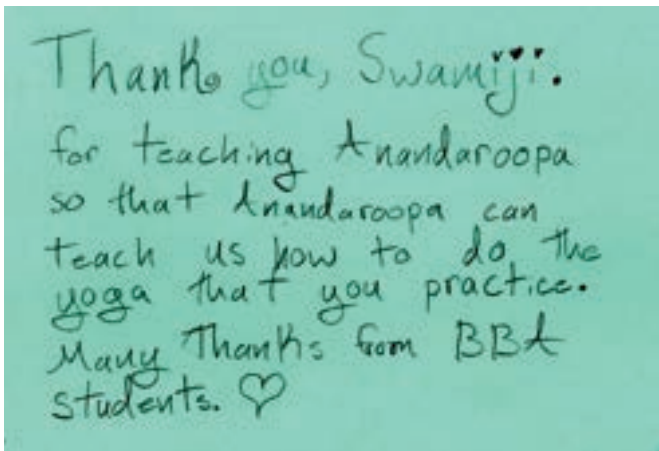 Thank you, Swamiji.
for teaching Anandaroopa
so that Anandaroopa can
teach us how to do the
yoga that you practice.
Many Thanks from BBA
students. ♡